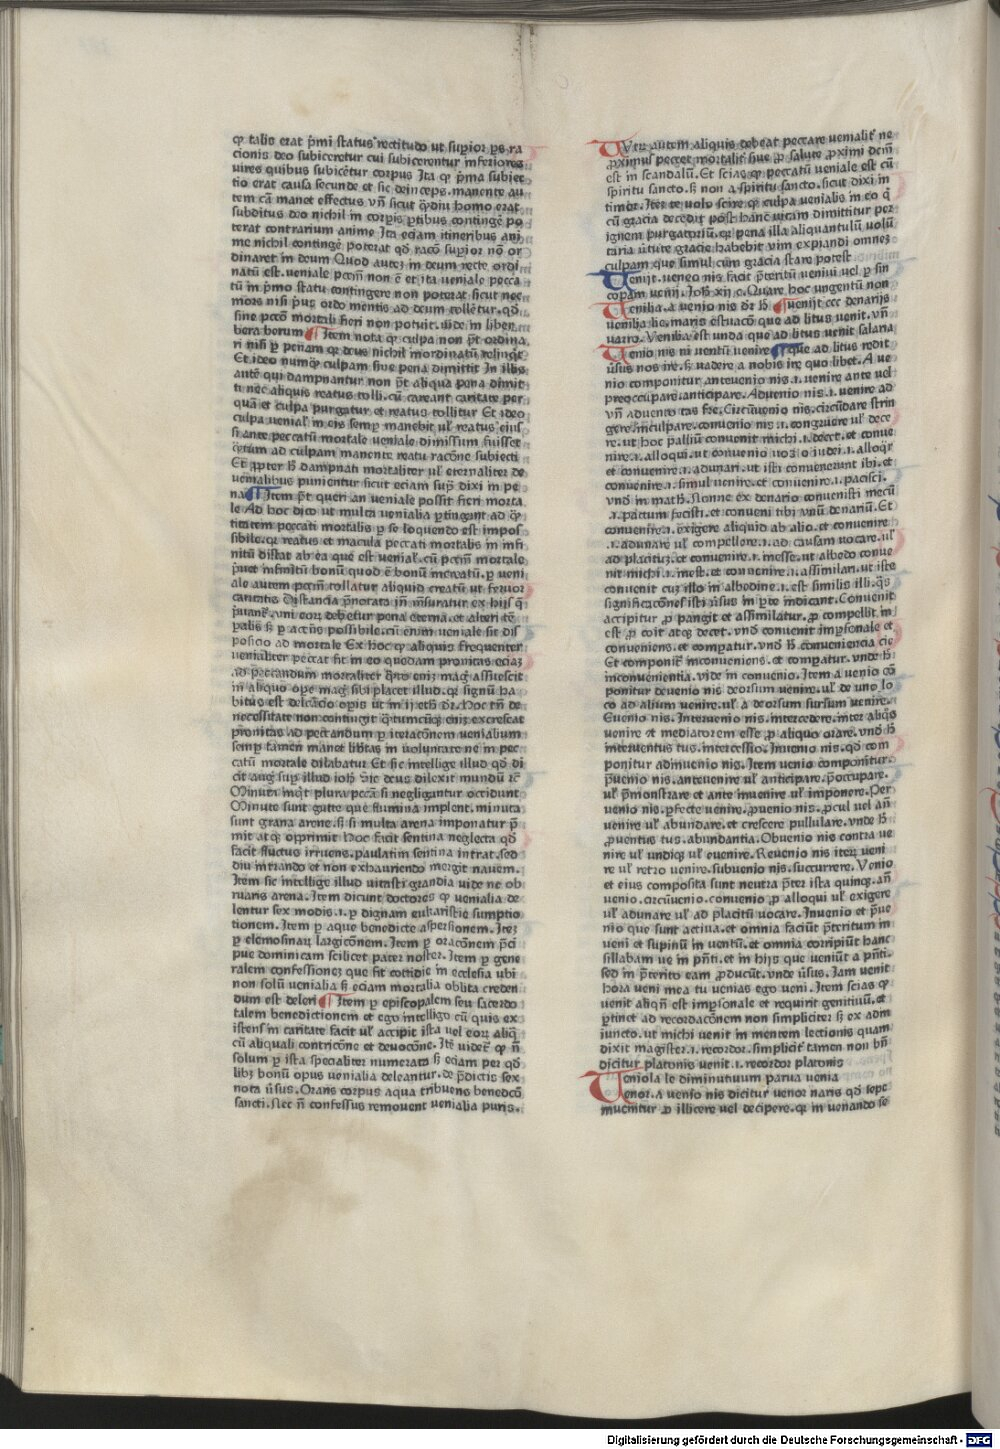 ꝙ talis erat p̄mi status rectitudo ut suꝑior ꝑs ra
cionis deo subiceretur cui subicerentur inferiores
vires quibus subicētur corpus Ita ꝙ p̄ma subiec
tio erat causa secunde et sic deinceps. manente au
tem cā manet effectus vn̄ sicut ꝙ̄diu homo erat
subditus deo nichil in corꝑis ꝑtibus contingē po
terat contrarium anime Ita eciam itineribus ani
me nichil contingē poterat qđ racō suꝑior nō or
dinaret in deum Quod autez in deum recte ordi
natū est. veniale pccm̄ non ē et ita veniale pecca
tū in p̄mo statu contingere non poterat sicut nec
mors nisi p̄us ordo mentis ad deum tolletur. qđ
sine pccō mortali fieri non potuit. vide in liber
libera
bera horum ¶ Item nota ꝙ culpa non p̄t ordina
ri nisi ꝑ penam ꝙ deus nichil inordinatū relinqt
Et ideo numꝙ culpam sine pena dimittit In illis
autē qui dampnantur non p̄t aliqua pena dimit
ti nec aliquis reatus tolli. cū careant caritate per
quā et culpa purgatur et reatus tollitur Et ideo
culpa venial' in eis semꝑ manebit ul' reatus eius
si ante peccatū mortale veniale dimissum fuisset
ꝙ̄tum ad culpam manente reatu racōne subiecti
Et ꝓpter h̄ dampnati mortaliter ul' eternaliter de
venialibus punientur sicut eciam sup̄ dixi in pe
na ¶ Item p̄t queri an veniale possit fieri morta
le Ad hoc dico ut multa venialia ꝑtingant ad ꝙ̄
titatem peccati mortalis ꝑ se loquendo est impos
sibile. qr reatus et macula peccati mortalis in infi
nitū distat ab ea que est venial'. cū pccm̄ mortale
p̄uet infinitū bonū quod ē bonū increatū. ꝑ veni
ale autem pccm̄ tollatur aliquid creatū ut fervor
caritatis Distancia p̄norata
posicio ad mortale Ex hoc ꝙ aliquis frequenter
venialiter peccat fit in eo quedam pronitas eciaz
ad peccandum mortaliter
in aliquo ope mag sibi placet illud. qr signū ha
bitus est delcācio opis ut in ij eth dr. Hoc tn̄ de
necessitate non contingit ꝙ̄tumcūqz eniz excrescat
pronitas ad peccandum ꝑ iteracōnem venialium
semꝑ tamen manet libtas in voluntare ne in pec
catū mortale dilabatur Et sic intellige illud qđ di
cit aug sup illud ioh v sic deus dilexit mundū rc
Minuta inqt plura pccā si negligantur occidunt
Minute sunt gutte que flumina implent. minuta
sunt grana arene. si multa arena imponatur p̄
mit atqz opprimit Hoc facit sentina neglecta qđ
facit fluctus irruens. paulatim sentina intrat. sed
diu intrando et non exhauriendo mergit navem.
Item sic intellige illud vitasti grandia vide ne ob
ruaris arena. Item dicunt doctores ꝙ venialia de
lentur sex modis. i. ꝑ dignam eukaristie sumptio
tionem. Item ꝑ aque benedicte aspersionem. Itez
ꝑ elemosinarz largicōnem. Item ꝑ oracōnem p̄ci
pue dominicam scilicet pater noster. Item ꝑ gene
ralem confessionez que fit cottidie in ecclesia ubi
non solū venialia sz eciam mortalia oblita creden
dum est deleri ¶ Item ꝑ episcopalem seu sacerdo
talem benedictionem et ego intelligo cū quis ex
istens in caritate facit ul' accipit ista vel eorz aliqđ
cū aliquali contricōne et devocōne. Itē videt ꝙ n̄
solum ꝑ ista specialiter numerata sz eciam per qđ
libz bonū opus venialia deleantur. de p̄dictis sex
nota v̄sus. Orans corpus aqua tribuens benedcō
sancti. Nec n̄ confessus removent venialia puris.
Vtrz autem aliquis debeat peccare venialit' ne
ꝓximus peccet mortalit' sine ꝓ salute ꝓximi dcm̄
est in scandalū. Et scias ꝙ peccatū veniale est cū
spiritu sancto. sz non a spiritu sancto. sicut dixi in
timor. Itez te volo scire ꝙ culpa venialis in eo ꝙ
cū gracia decedit post hanc vitam dimittitur per
ignem purgatoriū. qr pena illa aliquantulū volū
taria v̄tute gracie habebit vim expiandi omnez
culpam que simul cum gracia stare potest
Venijt. veneo nis facit p̄teritū venivi vel ꝑ sin
copam venij. Ioh xij c. Quare hoc ungentū non
Venilia. a venio nis dr h̄ ¶ venijt ccc denarijs
venilia lie. maris estuacō que ad litus venit. vn̄
varro. Venilia est unda que ad litus venit salaria
Venio nis ni ventū venire ¶ que ad litus redit
v̄sus nos ire. sz vadere a nobis ire quo libet. A ve
nio componitur antevenio nis. i. venire ante vel
preoccupare. anticipare. Advenio nis. i. venire ad
vn̄ adventō tas fre. Circūvenio nis. circūdare strin
gere. inculpare. convenio nis. i. congruere ul' dece
re. ut hoc palliū convenit michi. i. decet. et conve
nire. i. alloqui. ut convenio vos o iudei. i. alloqr
et convenire. i. adunari. ut isti convenerunt ibi. et
convenire. i. simul venire. et convenire. i. pacisci.
vnđ in math. Nonne ex denario convenisti mecū
.i. pactum fecisti. et conveni tibi vnū denariū. Et
convenire. i. exigere aliquid ab alio. et convenire
.i. adunare ul' compellere. i. ad causam vocare. ul'
ad placituz. et convenire. i. inesse. ut albedo conve
nit michi. i. inest. et convenire. i. assimilari. ut iste
convenit cuz illo in albedine. i. est similis illi. qs
significacōnes isti v̄sus in ꝑte indicant. Convenit
accipitur ꝓ pangit et assimilatur. ꝓ compellit. in
est ꝓ coit atqz decet. vnđ convenit imꝑsonale et
conveniens. et comꝑatur. vnđ h̄ conveniencia cie
Et componit' inconveniens. et comꝑatur. vnde h̄
inconvenientia. vide in convenio. Item a venio cō
ponitur devenio nis deorsum venire. ul' de uno lo
co ad alium venire. ul' a deorsum sursum venire.
Evenio nis. Intervenio nis. intercedere. inter aliqs
venire et mediatorem esse ꝓ aliquo orare. vnđ h̄
interventus tus. intercessio. Invenio nis. qđ com
ponitur adinvenio nis. Item venio componitur.
p̄venio nis. antevenire ul' anticipare. p̄occupare.
ul' p̄monstrare et ante invenire ul' imponere. Per
venio nis. ꝑfecte venire. ꝓvenio nis. ꝓcul vel an̄
venire ul' abundare. et crescere pullulare. vnde h̄
ꝓventus tus. abundantia. Obvenio nis contra ve
nire ul' undiqz ul' evenire. Revenio nis iterz veni
re ul' retro venire. subvenio nis. succurrere. Venio
et eius composita sunt neutra p̄ter ista quinqz. an̄
venio. circūvenio. convenio ꝓ alloqui ul' exigere
ul' adunare ul' ad placitū vocare. Invenio et p̄ve
nio que sunt activa. et omnia faciūt p̄teritum in
veni et supinū in ventū. et omnia corripiūt hanc
sillabam ve in p̄nti. et in hijs que veniūt a p̄nti.
sed in p̄terito eam ꝓducūt. vnde v̄sus. Iam venit
hora veni mea tu venias ego veni. Item scias ꝙ
venit aliqn̄ est imꝑsonale et requirit genitivū. et
ꝑtinet ad recordacōnem non simpliciter sz ex adm
iuncto. ut michi venit in mentem lectionis quam
dixit magister. i. recordor. simplicit' tamen non bn̄
dicitur platonis venit. i. recordor platonis
Veniola le diminutivum parva venia
Venor. a venio nis dicitur venor naris qđ sepe
invenitur ꝓ illicere vel decipere. qr in venando se
Digitalisierung gefördert durch die Deutsche Forschungsgemeinschaft - DFG